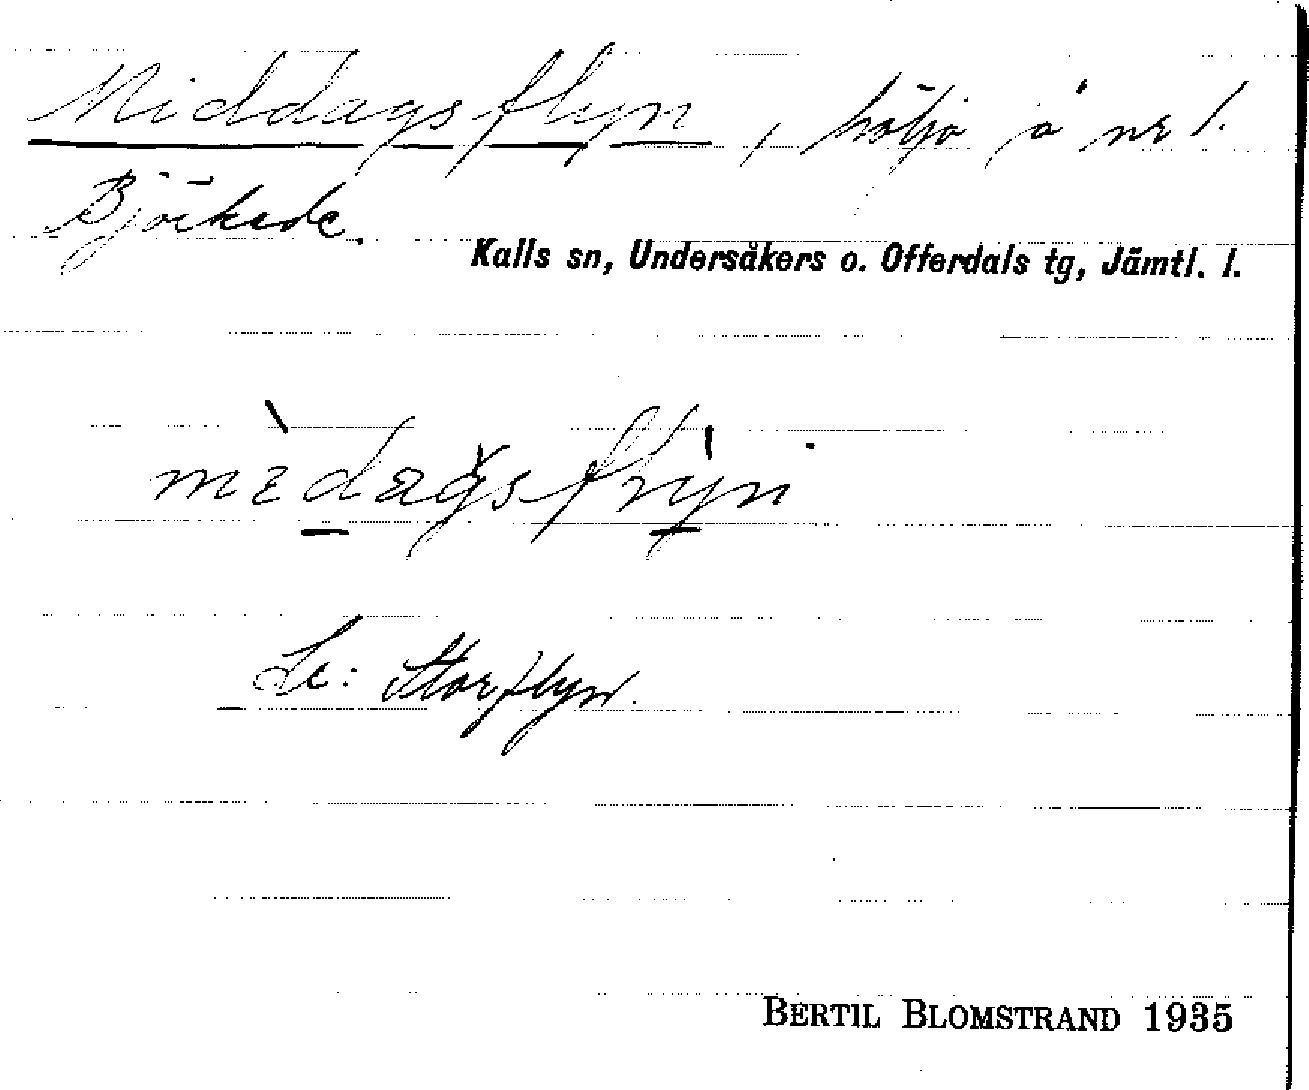 Middagsflyn, höljo å nr 1.
Björkede.
Kalls sn, Undersåkers o. Offerdals tg, Jämtl. l.
Se: Storflyn.
BERTIL BLOMSTRAND 1935